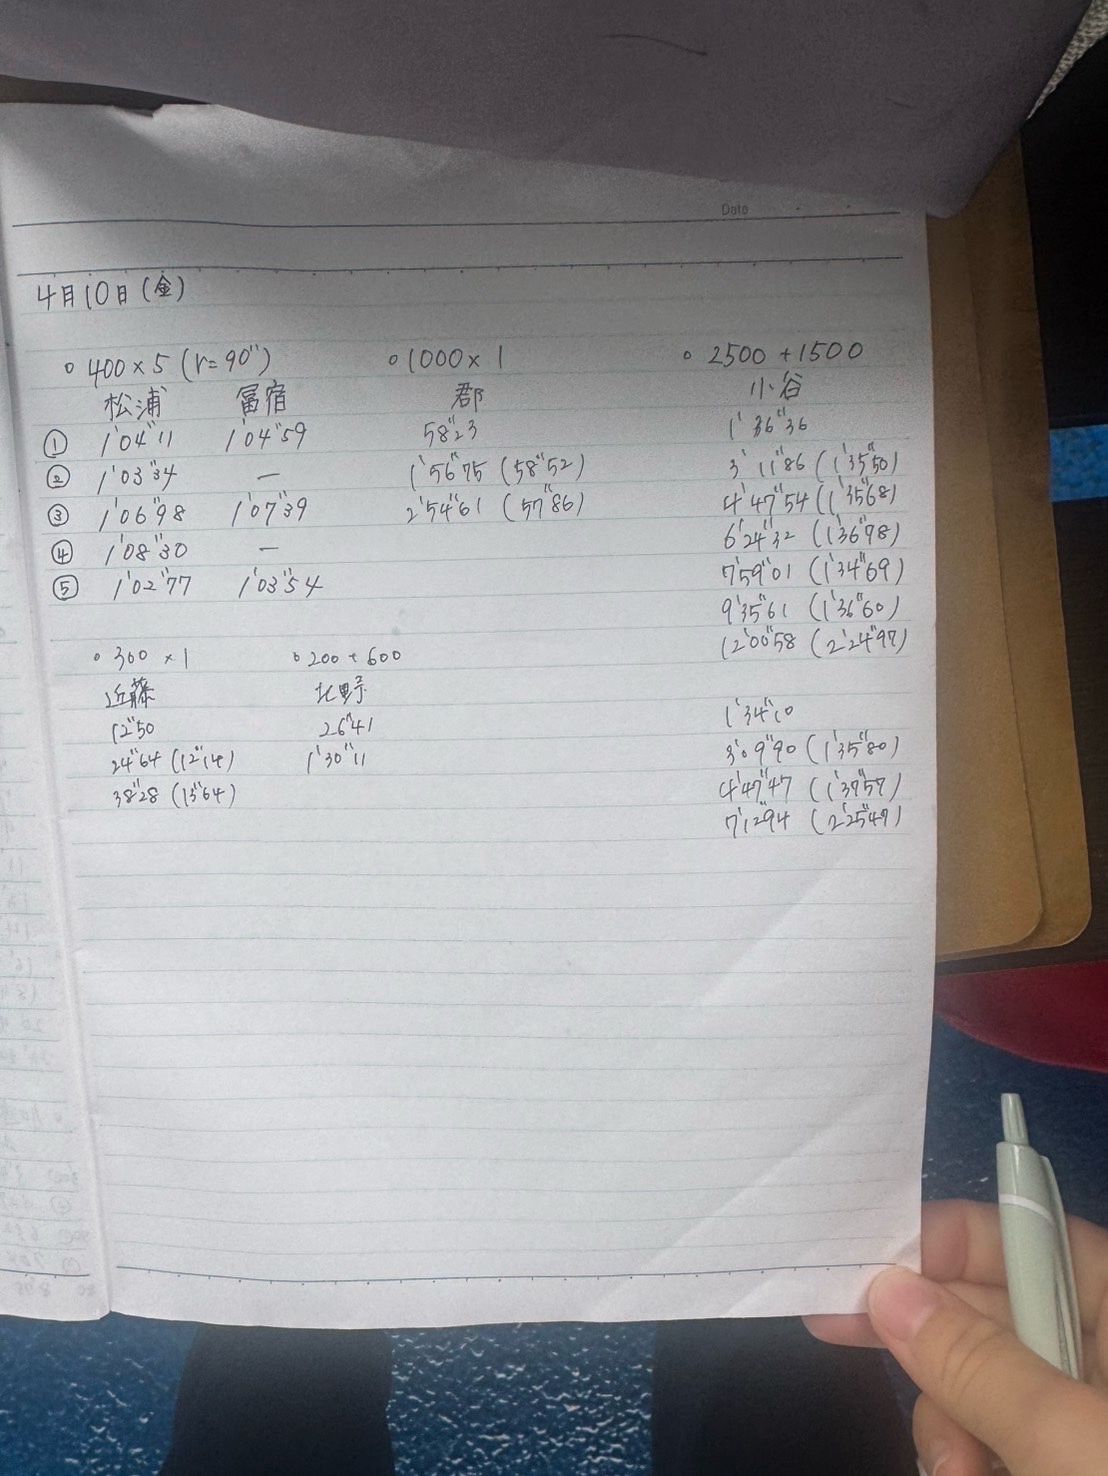 Date
4月10日(金)
○ 400×5 (r=90")
松浦 冨宿
① 1'04"11 1'04"59
② 1'03"34 ―
③ 1'06"98 1'07"39
④ 1'08"30 ―
⑤ 1'02"77 1'03"54
○ 1000×1
郡
58"23
1'56"75 (58"52)
2'54"61 (57"86)
○ 2500+1500
小谷
1'36"36
3'11"86 (1'35"50)
4'47"54 (1'35"68)
6'24"32 (1'36"78)
7'59"01 (1'34"69)
9'35"61 (1'36"60)
12'00"58 (2'24"97)
1'34"10
3'09"90 (1'35"80)
4'47"47 (1'37"57)
7'12"94 (2'25"47)
○ 300×1
近藤
12"50
24"64 (12"14)
38"28 (13"64)
○ 200+600
北野
26"41
1'30"11